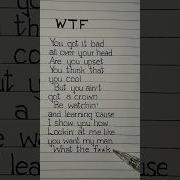 WTF
You got it bad
all over your head
Are you upset
You think that
you cool
But you ain't
got a crown
Be watchin'
and learning 'cause
I show you how
Lookin' at me like
you want my man
"What the fack